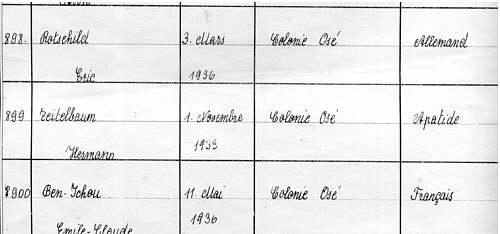 898. Rotschild 3. Mars Colonie Osé Allemand
Eric 1936
899 Zeitelbaum 1. Novembre Colonie Osé Apatide
Hermann 1933
900 Ben-Ichou 11. Mai Colonie Osé Français
Emile-Claude 1936